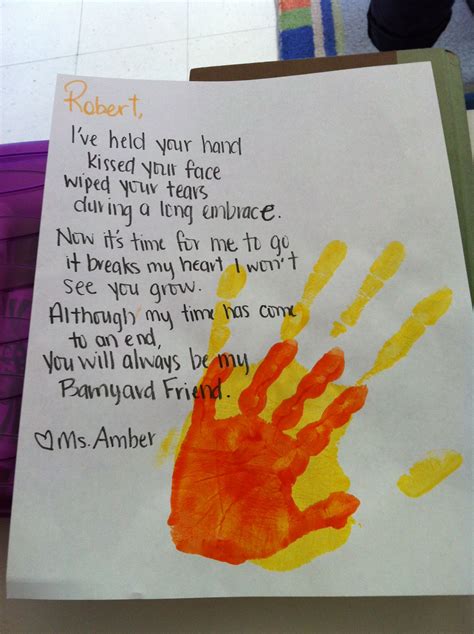 Robert,
I've held your hand
Kissed your face
wiped your tears
during a long embrace.
Now it's time for me to go
it breaks my heart I won't
see you grow.
Although my time has come
to an end,
You will always be my
Barnyard Friend.
♡Ms. Amber